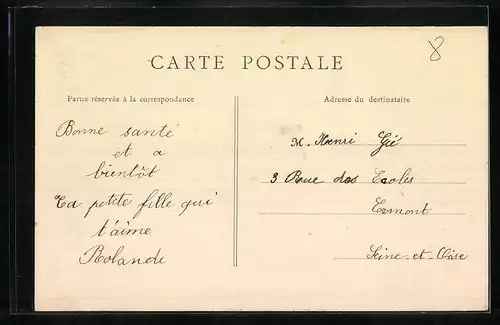 8
CARTE POSTALE
Partie réservée à la correspondance
Adresse du destinataire
Bonne santé
et a
bientôt
Ta petite fille qui
t'aime
Rolande
M. Henri Gié
3 Rue des Ecoles
Ermont
Seine-et-Oise